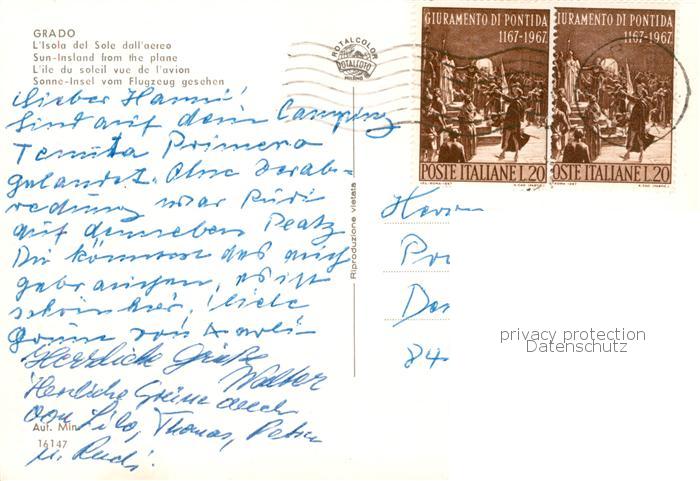 GRADO
L'Isola del Sole dall'aereo
Sun-Insland from the plane
L'ile du soleil vue de l'avion
Sonne-Insel vom Flugzeug gesehen
ROTALCOLOR
ROTALFOTO
MILANO
GIURAMENTO DI PONTIDA
1167-1967
POSTE ITALIANE L.20
GIURAMENTO DI PONTIDA
1167-1967
POSTE ITALIANE L.20
Lieber Hanni!
Sind auf dem Camping
Tenuta Primero
gelandet. Ohne Verab-
redung war Rudi
auf demselben Platz
Du könntest das auch
gebrauchen, es ist
schön hier. Liebe
Grüße von
Herzliche Grüße
Walter
Herzliche Grüße auch
von Lilo, Thomas,
u. Rudi.
Aut. Min
16147
Riproduzione vietata
Herrn
Pr
84
privacy protection
Datenschutz